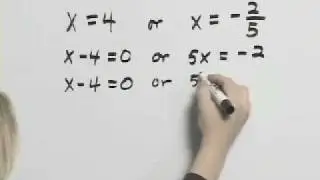 x = 4 or x = -2/5
x - 4 = 0 or 5x = -2
x - 4 = 0 or 5